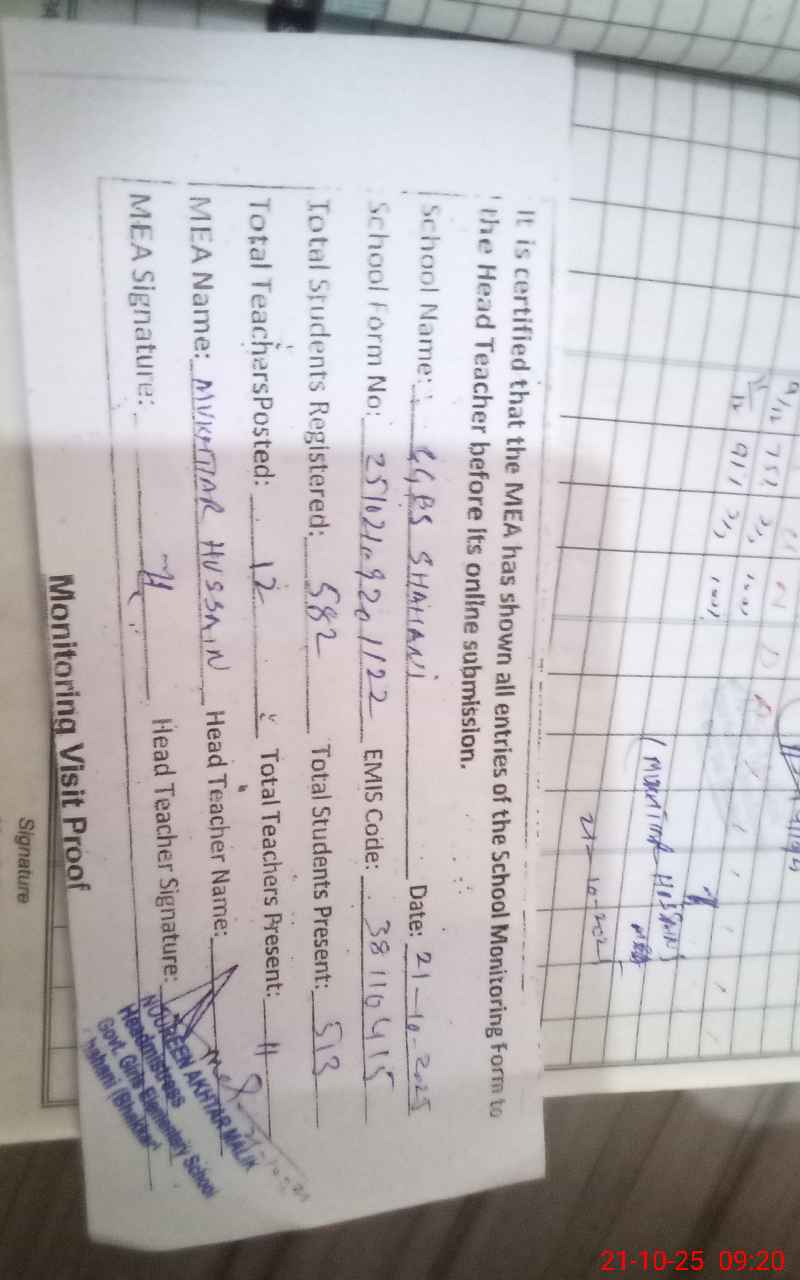 It is certified that the MEA has shown all entries of the School Monitoring Form to
the Head Teacher before its online submission.
School Name: GGES SHAHANI Date: 21-10-2025
School Form No: 25102109201122 EMIS Code: 38110415
Total Students Registered: 582 Total Students Present: 513
Total TeachersPosted: 12 Total Teachers Present: 11
MEA Name: MUKHTIAR HUSSAIN Head Teacher Name:
MEA Signature: Head Teacher Signature:
NOUREEN AKHTAR MALIK
Headmistress
Govt. Girls Elementary School
Shahani (Bhakkar)
Monitoring Visit Proof
Signature
MUKHTIAR HUSSAIN
MEA
21-10-2025
21-10-25 09:20